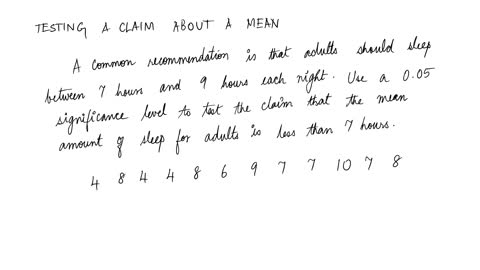 TESTING A CLAIM ABOUT A MEAN
A common recommendation is that adults should sleep
between 7 hours and 9 hours each night. Use a 0.05
significance level to test the claim that the mean
amount of sleep for adults is less than 7 hours.
4 8 4 4 8 6 9 7 7 10 7 8